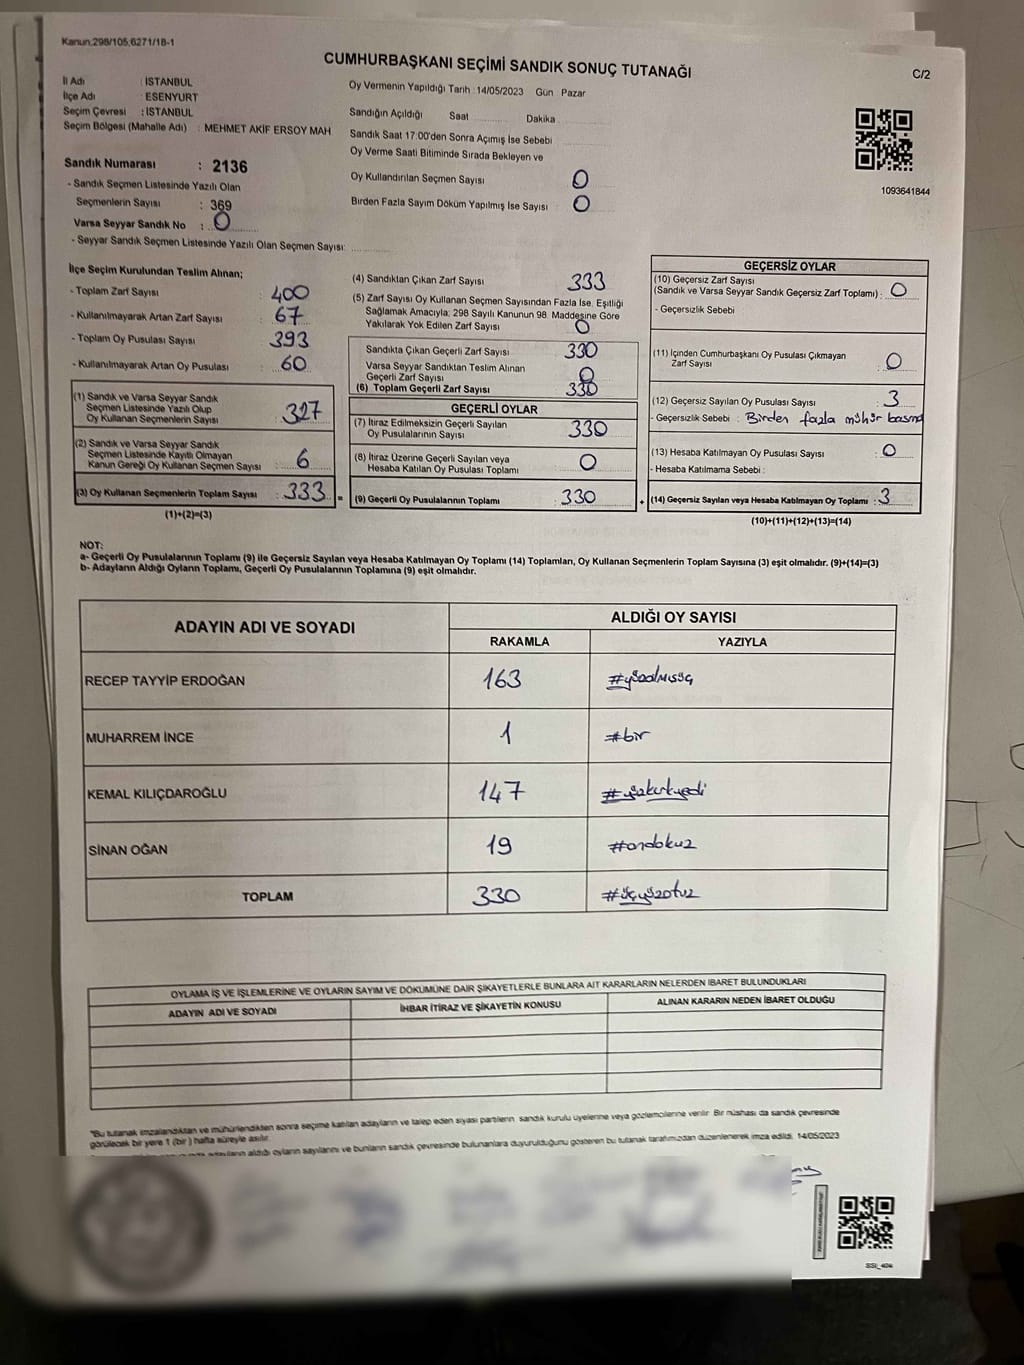 Kanun:298/105;6271/18-1
CUMHURBAŞKANI SEÇİMİ SANDIK SONUÇ TUTANAĞI
C/2
İl Adı : İSTANBUL
İlçe Adı : ESENYURT
Seçim Çevresi : İSTANBUL
Seçim Bölgesi (Mahalle Adı) : MEHMET AKİF ERSOY MAH
Sandık Numarası : 2136
- Sandık Seçmen Listesinde Yazılı Olan
Seçmenlerin Sayısı : 369
Varsa Seyyar Sandık No : 0
- Seyyar Sandık Seçmen Listesinde Yazılı Olan Seçmen Sayısı:
Oy Vermenin Yapıldığı Tarih : 14/05/2023 Gün Pazar
Sandığın Açıldığı Saat Dakika
Sandık Saat 17:00'den Sonra Açımış İse Sebebi
Oy Verme Saati Bitiminde Sırada Bekleyen ve
Oy Kullandırılan Seçmen Sayısı 0
Birden Fazla Sayım Döküm Yapılmış İse Sayısı 0
1093641844
İlçe Seçim Kurulundan Teslim Alınan;
- Toplam Zarf Sayısı : 400
- Kullanılmayarak Artan Zarf Sayısı : 67
- Toplam Oy Pusulası Sayısı : 393
- Kullanılmayarak Artan Oy Pusulası : 60
(1) Sandık ve Varsa Seyyar Sandık
Seçmen Listesinde Yazılı Olup
Oy Kullanan Seçmenlerin Sayısı : 327
(2) Sandık ve Varsa Seyyar Sandık
Seçmen Listesinde Kayıtlı Olmayan
Kanun Gereği Oy Kullanan Seçmen Sayısı : 6
(3) Oy Kullanan Seçmenlerin Toplam Sayısı : 333 =
(1)+(2)=(3)
(4) Sandıktan Çıkan Zarf Sayısı 333
(5) Zarf Sayısı Oy Kullanan Seçmen Sayısından Fazla İse, Eşitliği
Sağlamak Amacıyla; 298 Sayılı Kanunun 98. Maddesine Göre
Yakılarak Yok Edilen Zarf Sayısı 0
Sandıkta Çıkan Geçerli Zarf Sayısı 330
Varsa Seyyar Sandıktan Teslim Alınan
Geçerli Zarf Sayısı 0
(6) Toplam Geçerli Zarf Sayısı 330
GEÇERLİ OYLAR
(7) İtiraz Edilmeksizin Geçerli Sayılan
Oy Pusulalarının Sayısı : 330
(8) İtiraz Üzerine Geçerli Sayılan veya
Hesaba Katılan Oy Pusulası Toplamı : 0
(9) Geçerli Oy Pusulalarının Toplamı : 330 +
GEÇERSİZ OYLAR
(10) Geçersiz Zarf Sayısı
(Sandık ve Varsa Seyyar Sandık Geçersiz Zarf Toplamı) : 0
- Geçersizlik Sebebi :
(11) İçinden Cumhurbaşkanı Oy Pusulası Çıkmayan
Zarf Sayısı : 0
(12) Geçersiz Sayılan Oy Pusulası Sayısı : 3
- Geçersizlik Sebebi : Birden fazla mühür basma
(13) Hesaba Katılmayan Oy Pusulası Sayısı : 0
- Hesaba Katılmama Sebebi :
(14) Geçersiz Sayılan veya Hesaba Katılmayan Oy Toplamı : 3
(10)+(11)+(12)+(13)=(14)
NOT:
a- Geçerli Oy Pusulalarının Toplamı (9) ile Geçersiz Sayılan veya Hesaba Katılmayan Oy Toplamı (14) Toplamları, Oy Kullanan Seçmenlerin Toplam Sayısına (3) eşit olmalıdır. (9)+(14)=(3)
b- Adayların Aldığı Oyların Toplamı, Geçerli Oy Pusulalarının Toplamına (9) eşit olmalıdır.
ADAYIN ADI VE SOYADI
ALDIĞI OY SAYISI
RAKAMLA YAZIYLA
RECEP TAYYİP ERDOĞAN 163 #yüzaltmışüç
MUHARREM İNCE 1 #bir
KEMAL KILIÇDAROĞLU 147 #yüzkırkyedi
SİNAN OĞAN 19 #ondokuz
TOPLAM 330 #üçyüzotuz
OYLAMA İŞ VE İŞLEMLERİNE VE OYLARIN SAYIM VE DÖKÜMÜNE DAİR ŞİKAYETLERLE BUNLARA AİT KARARLARIN NELERDEN İBARET BULUNDUKLARI
ADAYIN ADI VE SOYADI İHBAR İTİRAZ VE ŞİKAYETİN KONUSU ALINAN KARARIN NEDEN İBARET OLDUĞU
"Bu tutanak imzalandıktan ve mühürlendikten sonra seçime katılan adayların ve talep eden siyasi partilerin sandık kurulu üyelerine veya gözlemcilerine verilir. Bir nüshası da sandık çevresinde
görülecek bir yere 1 (bir ) hafta süreyle asılır.
adayların aldığı oyların sayılarını ve bunların sandık çevresinde bulunanlara duyurulduğunu gösteren bu tutanak tarafımızdan düzenlenerek imza edildi. 14/05/2023